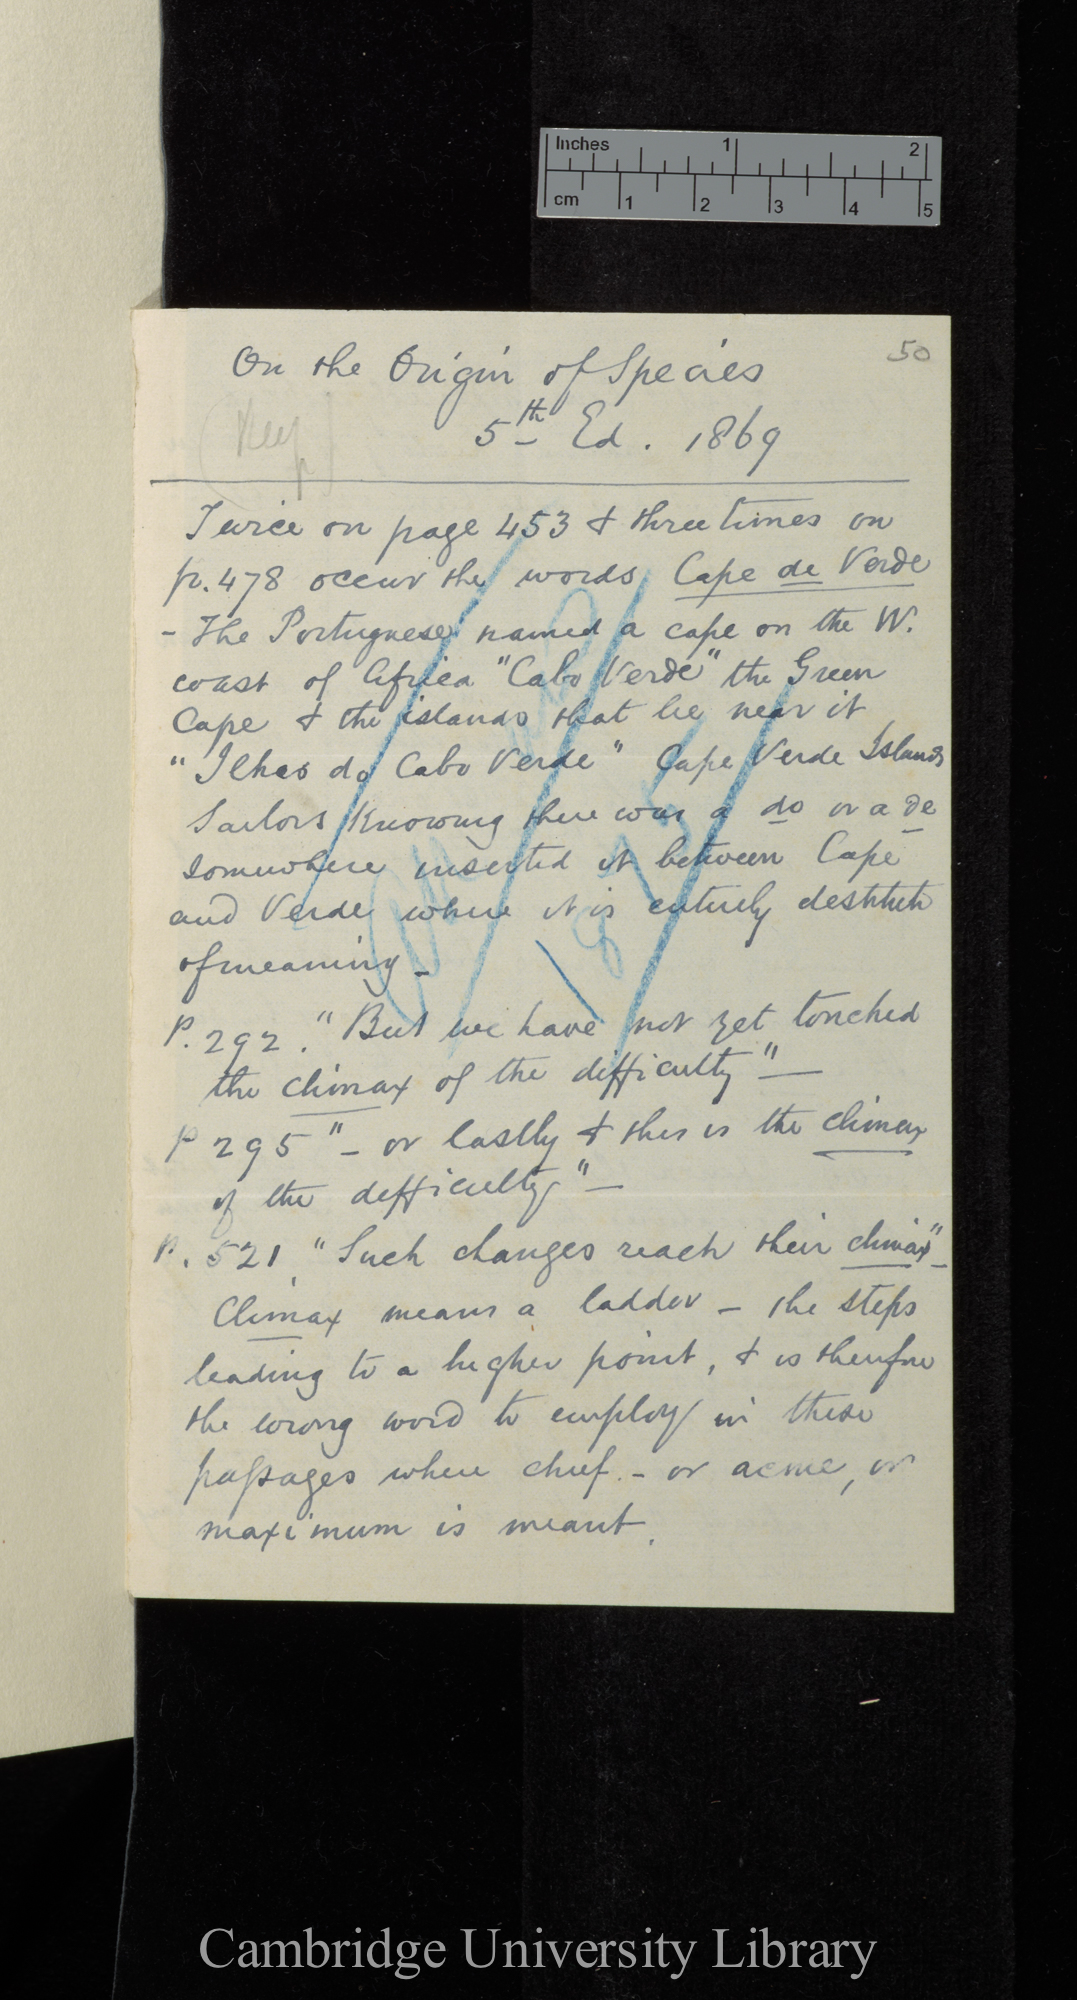 Inches 1 2
cm 1 2 3 4 5
50
On the Origin of Species
(Keep)
5th Ed. 1869
Twice on page 453 & three times on
p. 478 occur the words Cape de Verde
- The Portuguese named a cape on the W.
coast of Africa "Cabo Verde" the Green
Cape & the islands that lie near it
"Ilhas do Cabo Verde" Cape Verde Islands
Sailors knowing there was a do or a de
somewhere inserted it between Cape
and Verde where it is entirely destitute
of meaning -
P. 292. "But we have not yet touched
the climax of the difficulty" -
P 295 " - or lastly & this is the climax
of the difficulty" -
P. 521 "Such changes reach their climax" -
Climax means a ladder - the steps
leading to a higher point, & is therefore
the wrong word to employ in these
passages where chief - or acme, or
maximum is meant.
Cambridge University Library